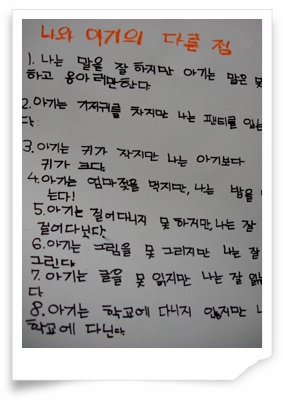 나와 아기의 다른 점
1. 나는 말을 잘 하지만 아기는 말은 못
하고 응아 러만한다
2. 아기는 기저귀를 차지만 나는 팬티를 입는
다.
3. 아기는 키가 작지만 나는 아기보다
키가 크다.
4. 아기는 엄마젖을 먹지만, 나는 밥을
는다!
5. 아기는 걸어다니지 못 하지만, 나는 잘
걸어다닌다.
6. 아기는 그림을 못 그리지만 나는 잘
그린다.
7. 아기는 글을 못 읽지만 나는 잘 읽는
다
8. 아기는 학교에 다니지 않지만 나
학교에 다닌다